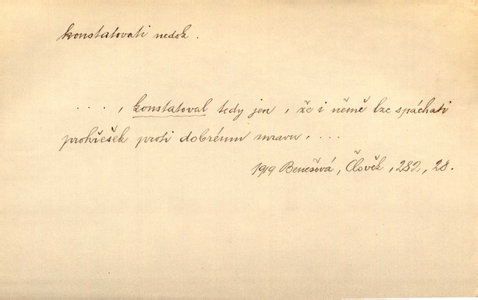 konstatovati nedok.
...., konstatoval tedy jen, že i němě lze spáchati
prohřešek proti dobrému mravu, ...
1919 Benešová, Člověk, 282, 28.